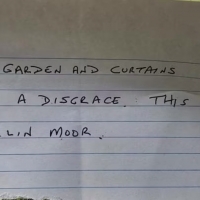 GARDEN AND CURTAINS
A DISGRACE. THIS
LIN MOOR.